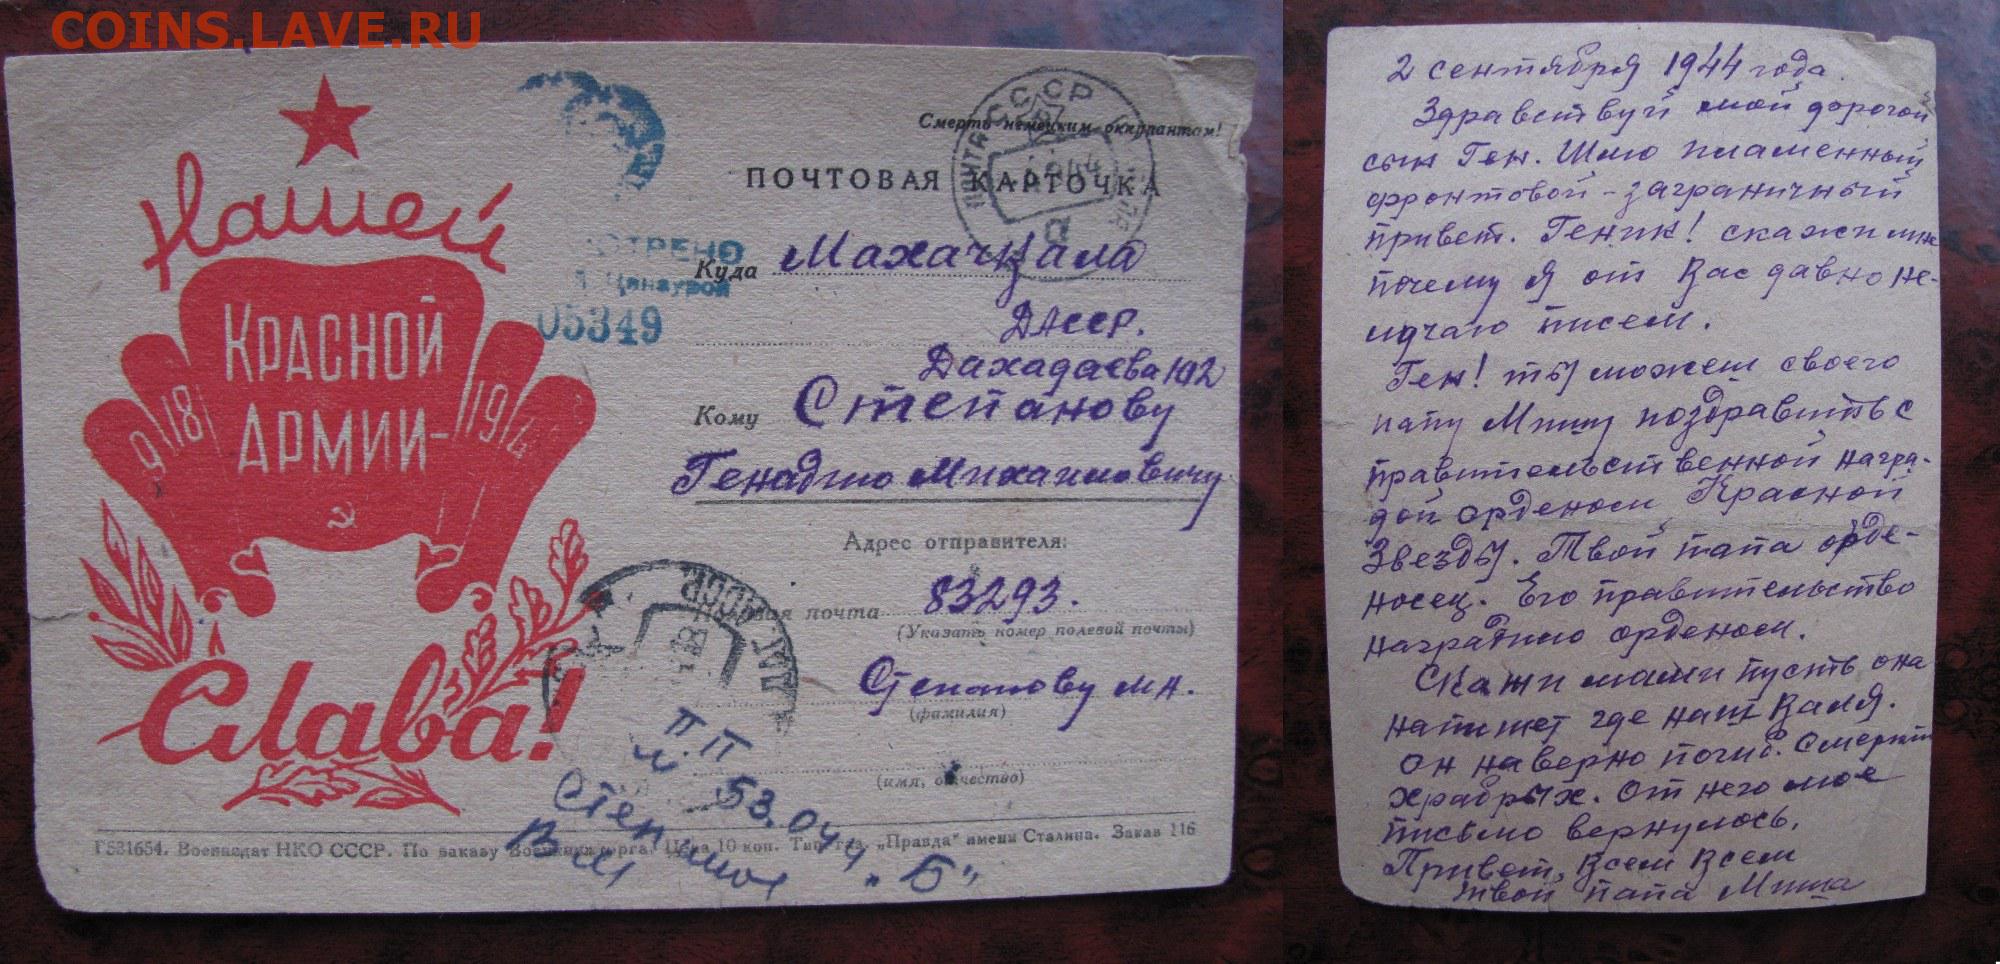 COINS.LAVE.RU
Нашей
КРАСНОЙ
АРМИИ-
918 194
Слава!
Смерть немецким оккупантам!
ПОЧТА СССР
ПОЧТОВАЯ КАРТОЧКА
ОТРЕНО
Цензурой
05349
Куда Махачкала
ДАССР.
Дахадаева 102
Кому Степанову
Генадию Михаиловичу
Адрес отправителя:
почта 83293.
(Указать номер полевой почты)
Степанову М.А.
(фамилия)
(имя, отчество)
П.П
53.044 "Б"
Вам
Г531654. Воениздат НКО СССР. По заказу Военкнижторга. Цена 10 коп. Тип. газ. „Правда" имени Сталина. Заказ 116
2 сентября 1944 года.
Здравствуй мой дорогой
сын Ген. Шлю пламенный
фронтовой-заграничный
привет. Геник! скажи мне
почему я от Вас давно не-
лучаю писем.
Ген! ты можем своего
папу Мишу поздравить с
правительственной награ-
дой орденом Красной
Звезды. Твой папа орде-
носец. Его правительство
наградило орденом.
Скажи мами пусть она
напишет где наш Валя.
он наверно погиб. Смерти
храбрых. От него мое
письмо вернулось.
Привет, Всем Всем
твой папа Миша